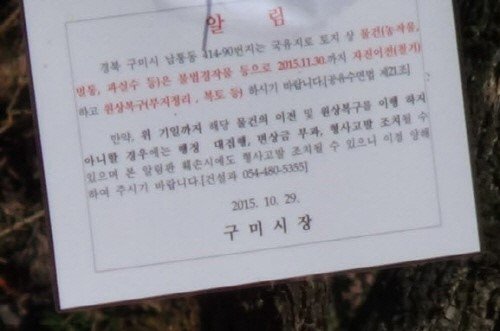 알 림
경북 구미시 남통동 414-90번지는 국유지로 토지 상 물건(농작물,
멀통, 과실수 등)은 불법경작물 등으로 2015.11.30.까지 자진이전(철거)
하고 원상복구(부지정리 , 복토 등) 하시기 바랍니다.[공유수면법 제21조]
만약, 위 기일까지 해당 물건의 이전 및 원상복구를 이행 하지
아니할 경우에는 행정 대집행, 변상금 부과, 형사고발 조치될 수
있으며 본 알림판 훼손시에도 형사고발 조치될 수 있으니 이점 양해
하여 주시기 바랍니다.[건설과 054-480-5355]
2015. 10. 29.
구 미 시 장